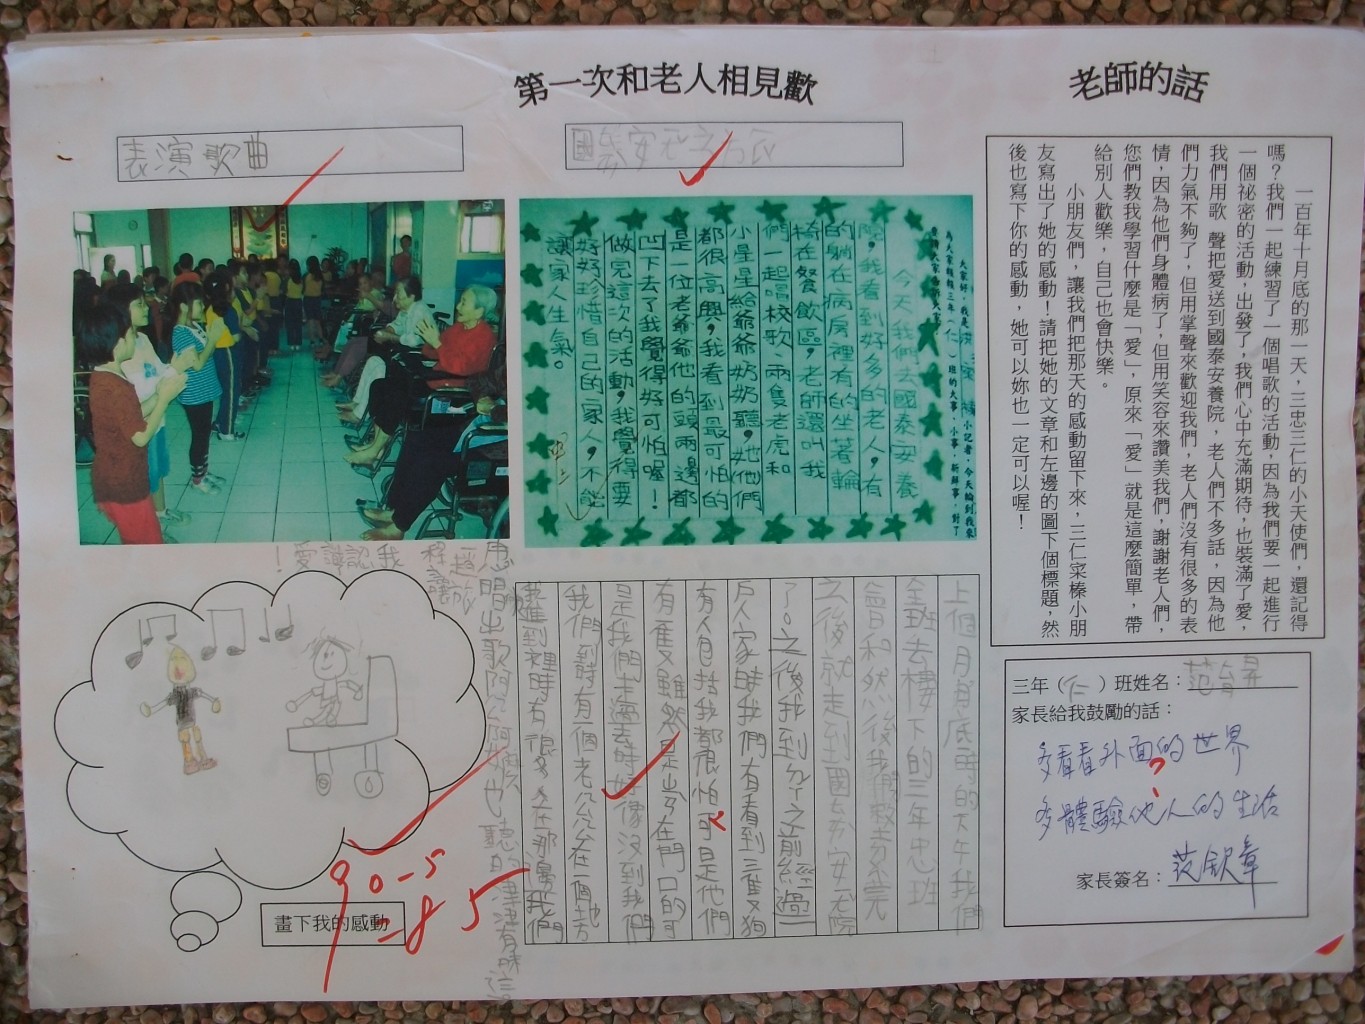 第一次和老人相見歡
老師的話
一百年十月底的那一天，三忠三仁的小天使們，還記得
嗎？我們一起練習了一個唱歌的活動，因為我們要一起進行
一個祕密的活動，出發了，我們心中充滿期待，也裝滿了愛，
我們用歌 聲把愛送到國泰安養院，老人們不多話，因為他
們力氣不夠了，但用掌聲來歡迎我們，老人們沒有很多的表
情，因為他們身體病了，但用笑容來讚美我們，謝謝老人們，
您們教我學習什麼是「愛」，原來「愛」就是這麼簡單，帶
給別人歡樂，自己也會快樂。
小朋友們，讓我們把那天的感動留下來，三仁宋榛小朋
友寫出了她的感動！請把她的文章和左邊的圖下個標題，然
後也寫下你的感動，她可以妳也一定可以喔！
今天我們去國泰安養
院，我看到好多的老人，有
的躺在病房裡有的坐著輪
椅在餐飲區，老師還叫我
們一起唱校歌、兩隻老虎和
小星星給爺爺奶奶聽，她他們
都很高興，我看到最可怕的
是一位老爺爺他的頭兩邊都
凹下去了我覺得好可怕喔！
做完這次的活動，我覺得要
好好珍惜自己的家人，不能
讓家人生氣。
表演歌曲
三年（仁）班姓名：范育昇
家長給我鼓勵的話：
多看看外面的世界
多體驗他人的生活
家長簽名：范欽章
上個月月底時的下午我們
全班去樓下的三年忠班
之後就走到國泰安元院
了。之後我到ㄉㄚ之前經過一
戶人家時我們有看到三隻狗
有人包括我都很怕可是他們
是我們走過去時好像沒到我們
我們到時有一個老公公在一個地方
我進到裡時有很多在那邊
畫下我的感動
90-5
=85